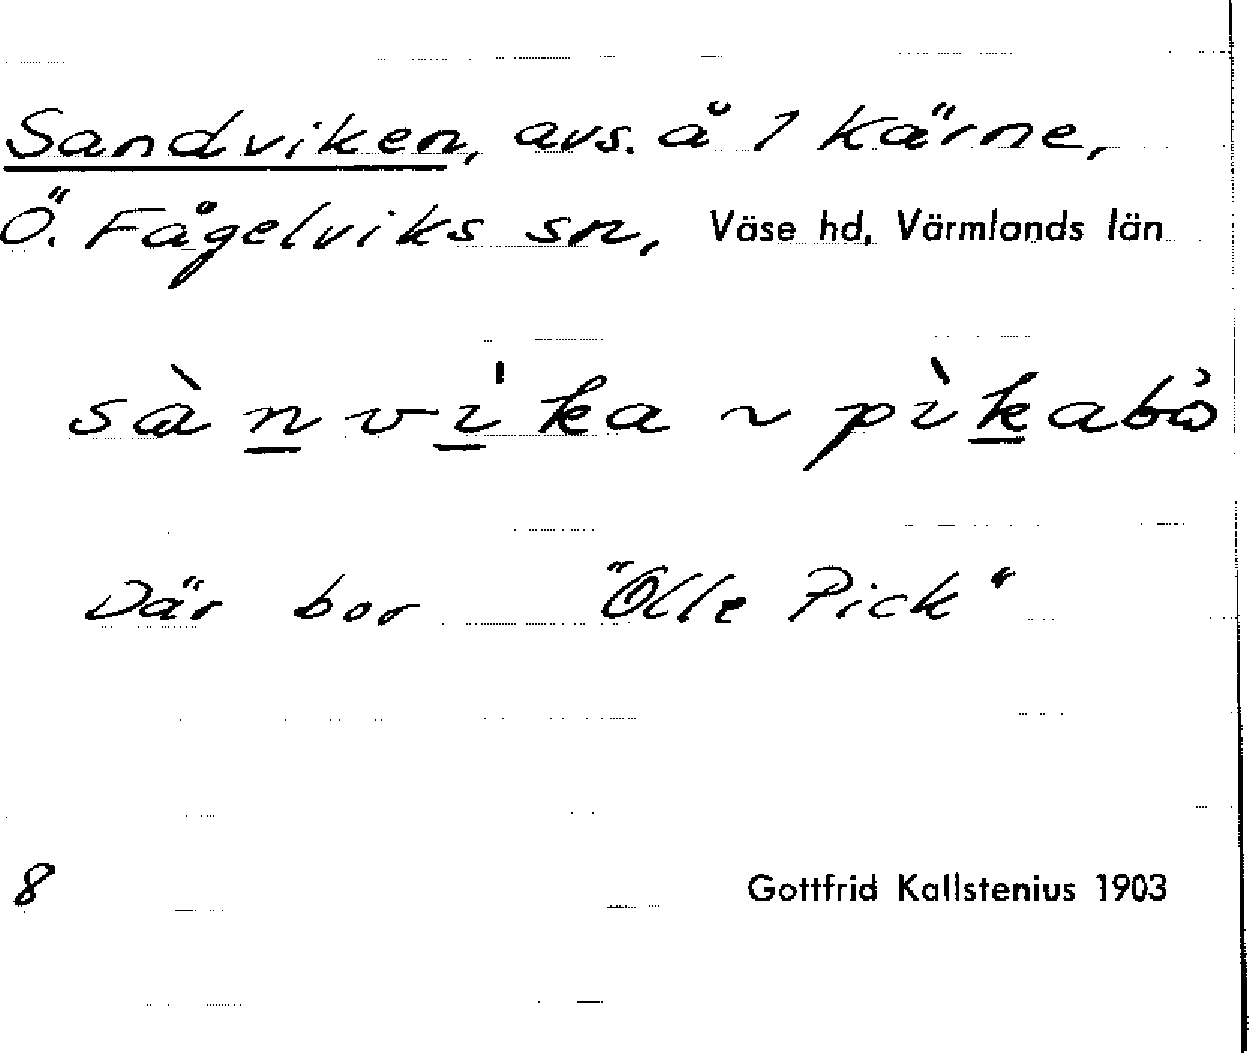 Sandviken, avs. å 1 Kärne,
Ö. Fågelviks sn, Väse hd, Värmlands län
sànvi̍ka ~ pìkabò
Där bor "Olle Pick"
8
Gottfrid Kallstenius 1903